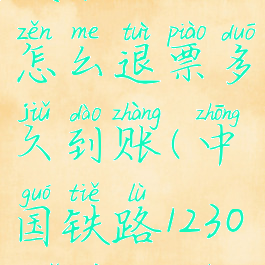 zěn me tuì piào duō
怎么退票多
jiǔ dào zhàng zhōng
久到账(中
guó tiě lù
国铁路1230